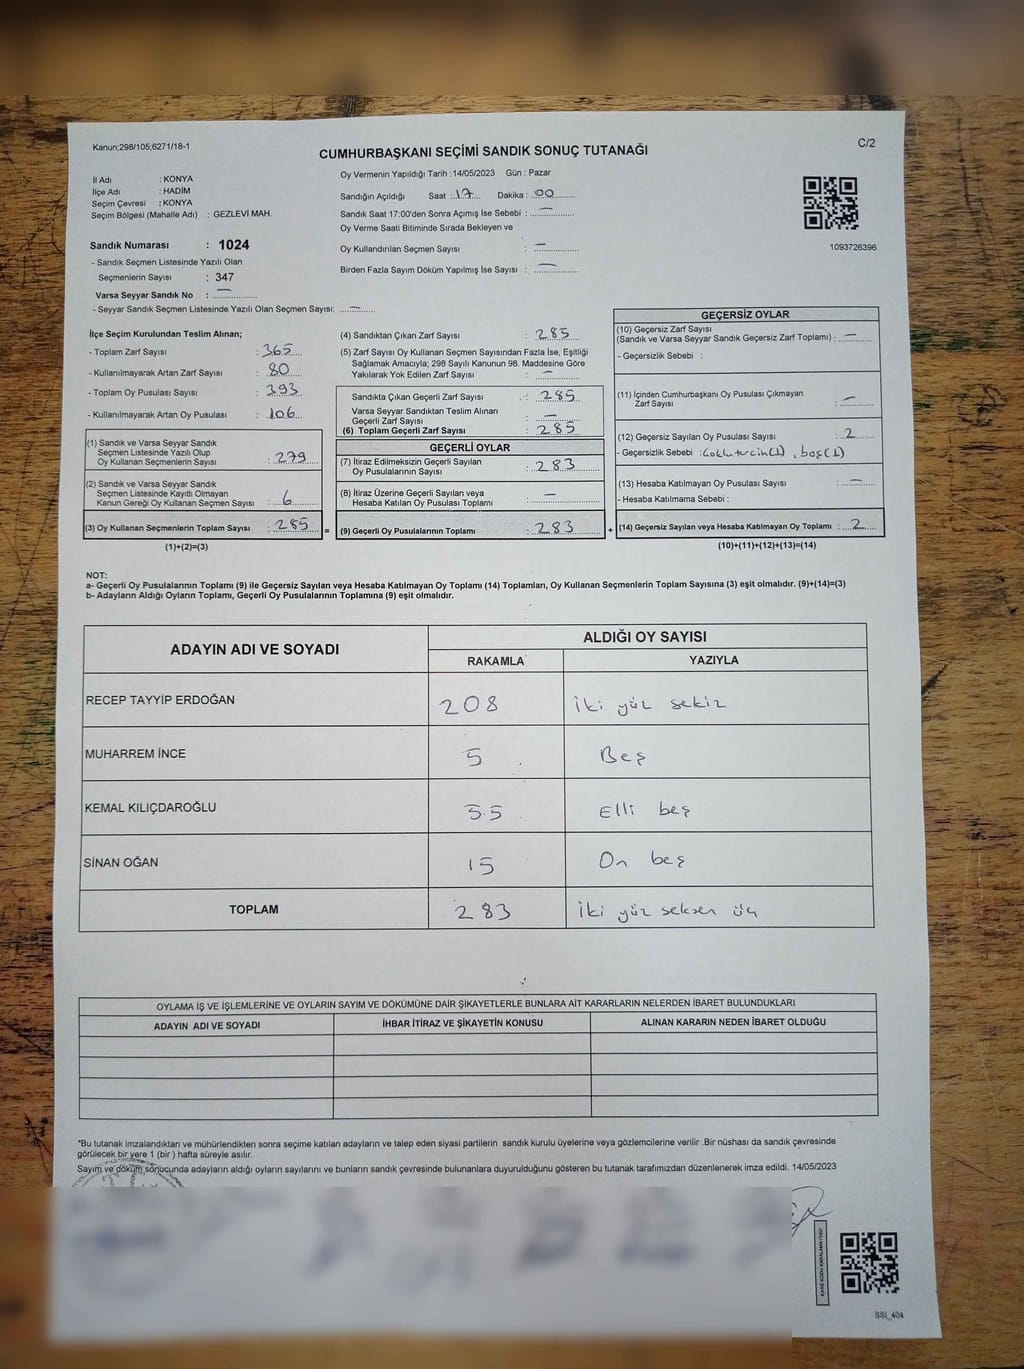 Kanun;298/105;6271/18-1
C/2
CUMHURBAŞKANI SEÇİMİ SANDIK SONUÇ TUTANAĞI
İl Adı : KONYA
İlçe Adı : HADİM
Seçim Çevresi : KONYA
Seçim Bölgesi (Mahalle Adı) : GEZLEVİ MAH.
Sandık Numarası : 1024
- Sandık Seçmen Listesinde Yazılı Olan
Seçmenlerin Sayısı : 347
Varsa Seyyar Sandık No : —
- Seyyar Sandık Seçmen Listesinde Yazılı Olan Seçmen Sayısı: —
Oy Vermenin Yapıldığı Tarih :14/05/2023 Gün : Pazar
Sandığın Açıldığı Saat : 17 Dakika : 00
Sandık Saat 17:00'den Sonra Açımış İse Sebebi : —
Oy Verme Saati Bitiminde Sırada Bekleyen ve
Oy Kullandırılan Seçmen Sayısı : —
Birden Fazla Sayım Döküm Yapılmış İse Sayısı : —
1093726396
İlçe Seçim Kurulundan Teslim Alınan;
- Toplam Zarf Sayısı : 365
- Kullanılmayarak Artan Zarf Sayısı : 80
- Toplam Oy Pusulası Sayısı : 393
- Kullanılmayarak Artan Oy Pusulası : 106
(1) Sandık ve Varsa Seyyar Sandık
Seçmen Listesinde Yazılı Olup
Oy Kullanan Seçmenlerin Sayısı : 279
(2) Sandık ve Varsa Seyyar Sandık
Seçmen Listesinde Kayıtlı Olmayan
Kanun Gereği Oy Kullanan Seçmen Sayısı : 6
(3) Oy Kullanan Seçmenlerin Toplam Sayısı : 285 =
(1)+(2)=(3)
(4) Sandıktan Çıkan Zarf Sayısı : 285
(5) Zarf Sayısı Oy Kullanan Seçmen Sayısından Fazla İse, Eşitliği
Sağlamak Amacıyla; 298 Sayılı Kanunun 98. Maddesine Göre
Yakılarak Yok Edilen Zarf Sayısı : —
Sandıkta Çıkan Geçerli Zarf Sayısı : 285
Varsa Seyyar Sandıktan Teslim Alınan
Geçerli Zarf Sayısı : —
(6) Toplam Geçerli Zarf Sayısı : 285
GEÇERLİ OYLAR
(7) İtiraz Edilmeksizin Geçerli Sayılan
Oy Pusulalarının Sayısı : 283
(8) İtiraz Üzerine Geçerli Sayılan veya
Hesaba Katılan Oy Pusulalarının Toplamı : —
(9) Geçerli Oy Pusulalarının Toplamı : 283 +
GEÇERSİZ OYLAR
(10) Geçersiz Zarf Sayısı
(Sandık ve Varsa Seyyar Sandık Geçersiz Zarf Toplamı) : —
- Geçersizlik Sebebi :
(11) İçinden Cumhurbaşkanı Oy Pusulası Çıkmayan
Zarf Sayısı : —
(12) Geçersiz Sayılan Oy Pusulası Sayısı : 2
- Geçersizlik Sebebi : (1), boş(1)
(13) Hesaba Katılmayan Oy Pusulası Sayısı : —
- Hesaba Katılmama Sebebi :
(14) Geçersiz Sayılan veya Hesaba Katılmayan Oy Toplamı : 2
(10)+(11)+(12)+(13)=(14)
NOT:
a- Geçerli Oy Pusulalarının Toplamı (9) ile Geçersiz Sayılan veya Hesaba Katılmayan Oy Toplamı (14) Toplamları, Oy Kullanan Seçmenlerin Toplam Sayısına (3) eşit olmalıdır. (9)+(14)=(3)
b- Adayların Aldığı Oyların Toplamı, Geçerli Oy Pusulalarının Toplamına (9) eşit olmalıdır.
ADAYIN ADI VE SOYADI
ALDIĞI OY SAYISI
RAKAMLA YAZIYLA
RECEP TAYYİP ERDOĞAN 208 İki yüz sekiz
MUHARREM İNCE 5 Beş
KEMAL KILIÇDAROĞLU 55 Elli beş
SİNAN OĞAN 15 On beş
TOPLAM 283 İki yüz seksen üç
OYLAMA İŞ VE İŞLEMLERİNE VE OYLARIN SAYIM VE DÖKÜMÜNE DAİR ŞİKAYETLERLE BUNLARA AİT KARARLARIN NELERDEN İBARET BULUNDUKLARI
ADAYIN ADI VE SOYADI İHBAR İTİRAZ VE ŞİKAYETİN KONUSU ALINAN KARARIN NEDEN İBARET OLDUĞU
*Bu tutanak imzalandıktan ve mühürlendikten sonra seçime katılan adayların ve talep eden siyasi partilerin sandık kurulu üyelerine veya gözlemcilerine verilir .Bir nüshası da sandık çevresinde
görülecek bir yere 1 (bir ) hafta süreyle asılır.
Sayım ve döküm sonucunda adayların aldığı oyların sayılarını ve bunların sandık çevresinde bulunanlara duyurulduğunu gösteren bu tutanak tarafımızdan düzenlenerek imza edildi. 14/05/2023
KARE KODU KARALAMAYINIZ!
SSI_404